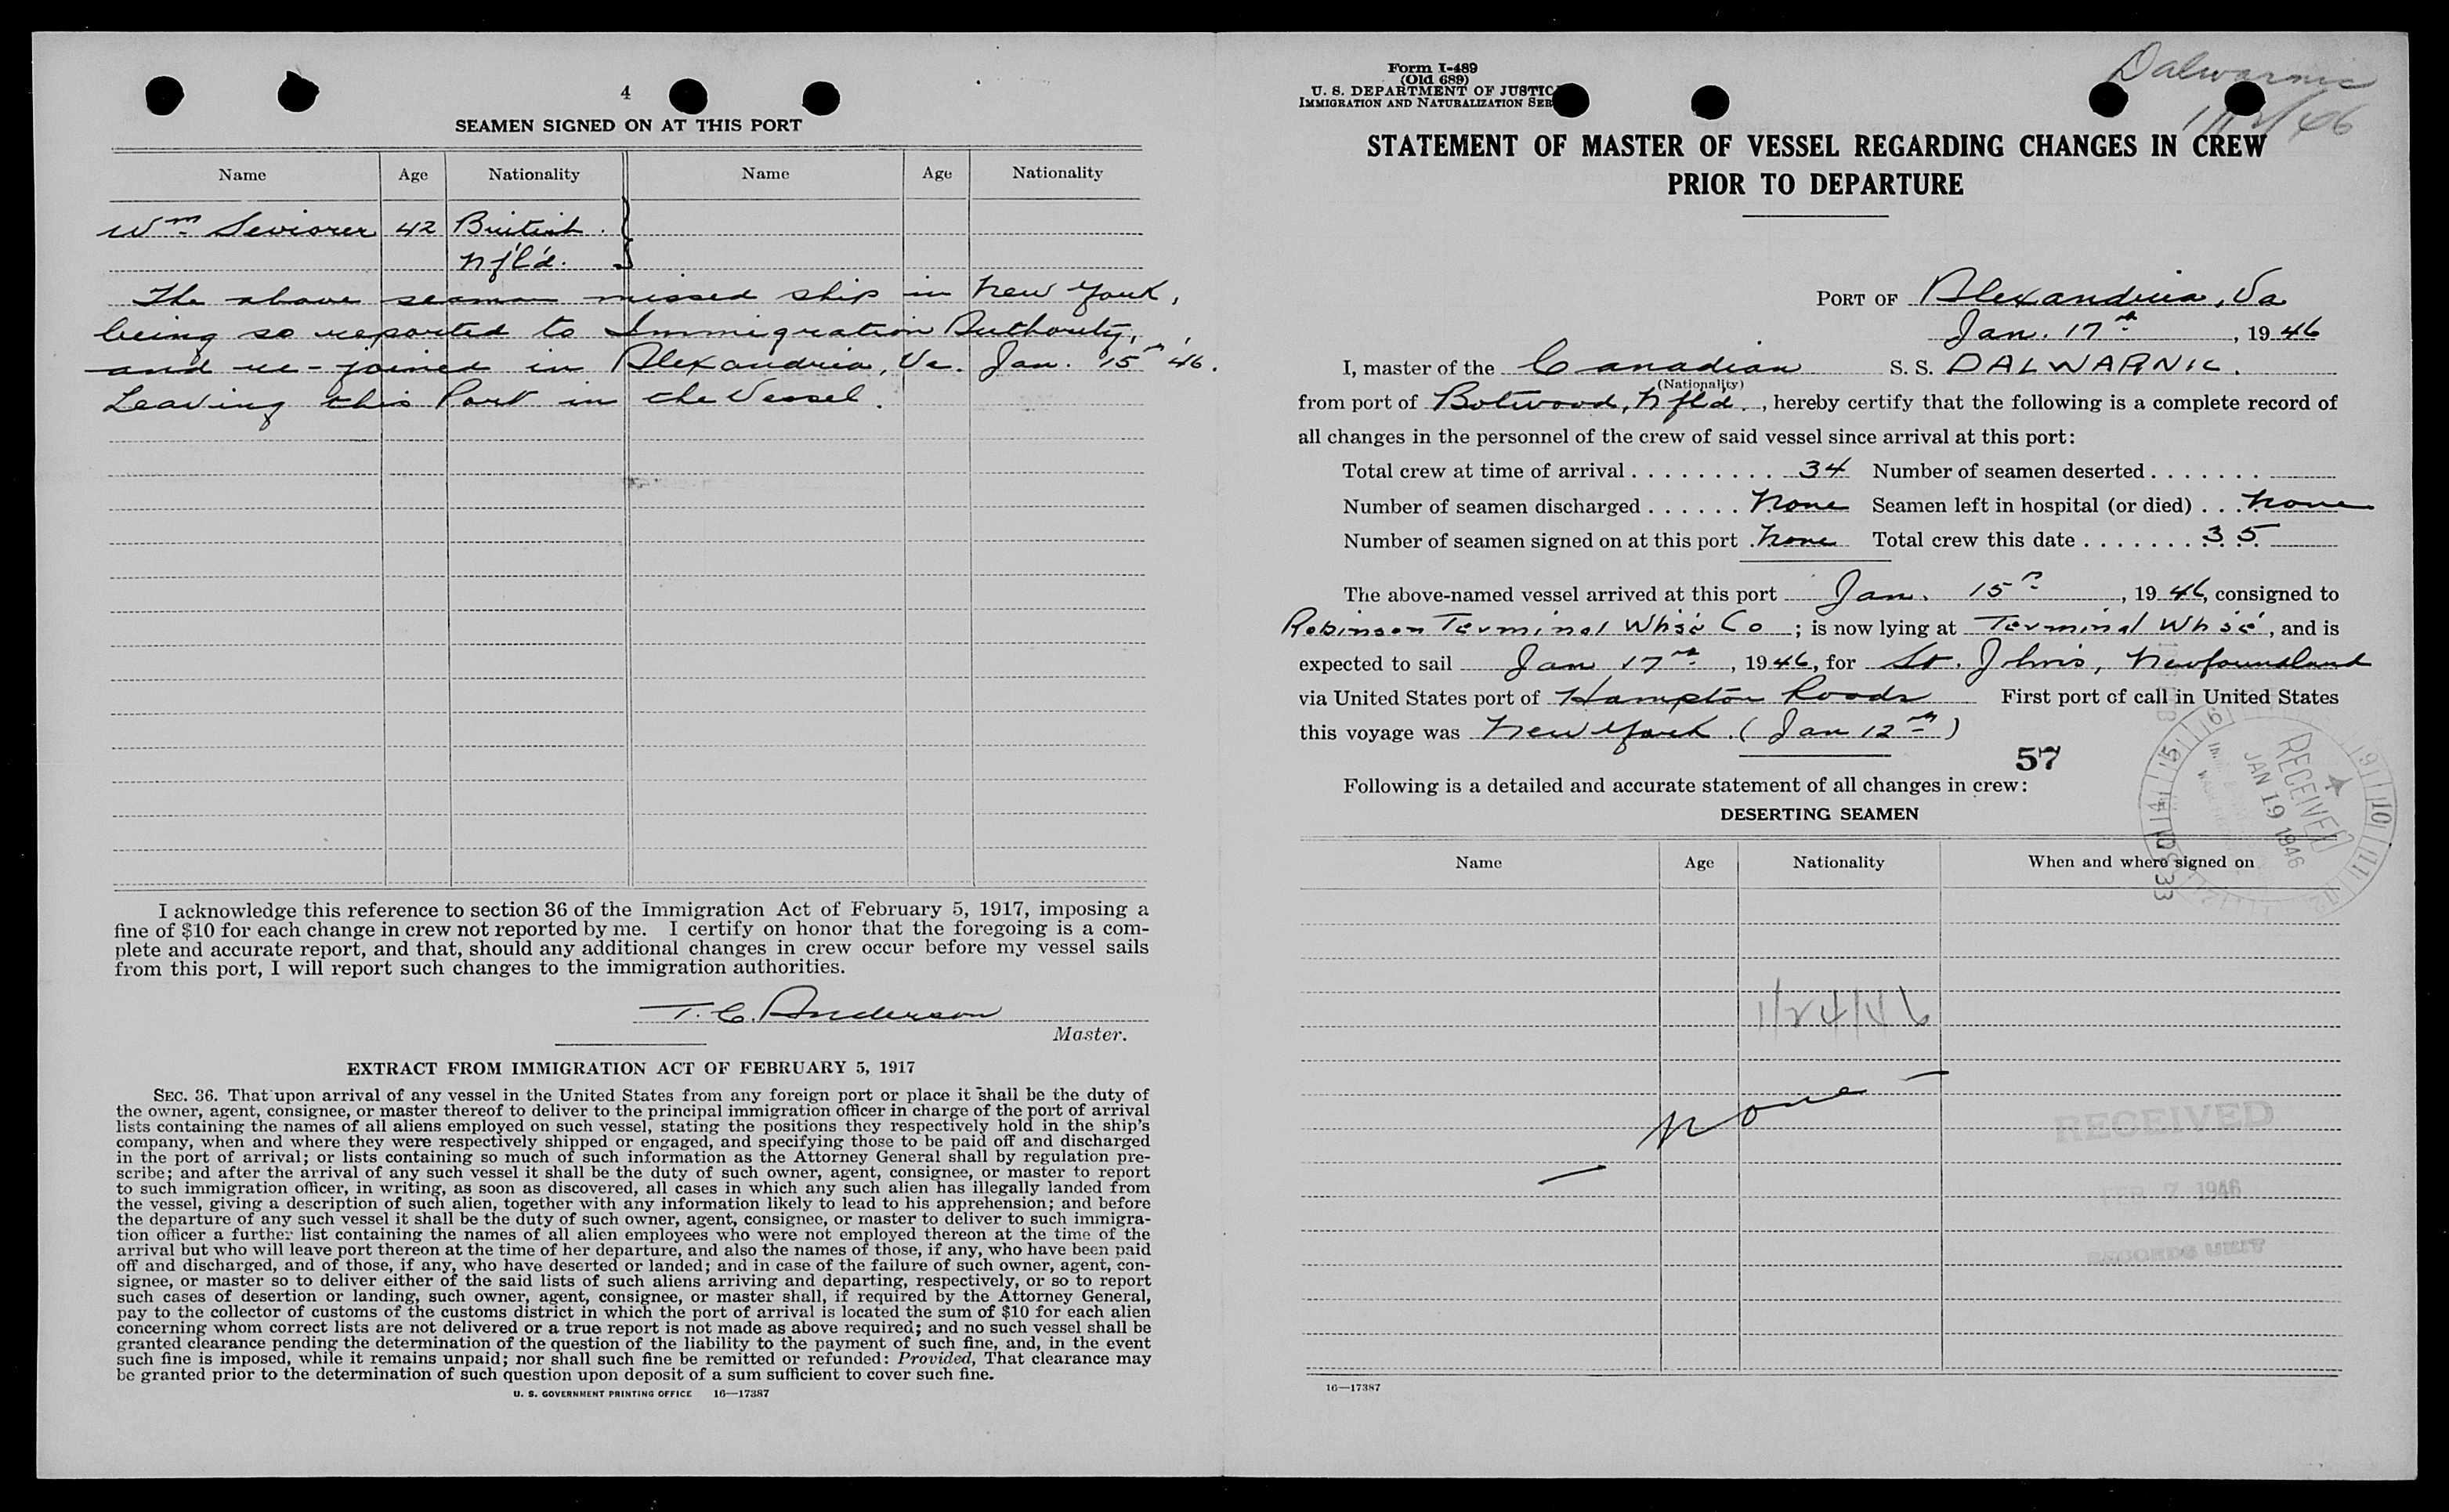 4
SEAMEN SIGNED ON AT THIS PORT
Name Age Nationality Name Age Nationality
Wm Seviorer 42 British
Nfl'd.
The above seaman missed ship in New York,
being so reported to Immigration Authority,
and re-joined in Alexandria, Va. Jan. 15th '46.
Leaving this Port in the Vessel.
I acknowledge this reference to section 36 of the Immigration Act of February 5, 1917, imposing a
fine of $10 for each change in crew not reported by me. I certify on honor that the foregoing is a com-
plete and accurate report, and that, should any additional changes in crew occur before my vessel sails
from this port, I will report such changes to the immigration authorities.
T. C. Anderson
Master.
EXTRACT FROM IMMIGRATION ACT OF FEBRUARY 5, 1917
SEC. 36. That upon arrival of any vessel in the United States from any foreign port or place it shall be the duty of
the owner, agent, consignee, or master thereof to deliver to the principal immigration officer in charge of the port of arrival
lists containing the names of all aliens employed on such vessel, stating the positions they respectively hold in the ship's
company, when and where they were respectively shipped or engaged, and specifying those to be paid off and discharged
in the port of arrival; or lists containing so much of such information as the Attorney General shall by regulation pre-
scribe; and after the arrival of any such vessel it shall be the duty of such owner, agent, consignee, or master to report
to such immigration officer, in writing, as soon as discovered, all cases in which any such alien has illegally landed from
the vessel, giving a description of such alien, together with any information likely to lead to his apprehension; and before
the departure of any such vessel it shall be the duty of such owner, agent, consignee, or master to deliver to such immigra-
tion officer a further list containing the names of all alien employees who were not employed thereon at the time of the
arrival but who will leave port thereon at the time of her departure, and also the names of those, if any, who have been paid
off and discharged, and of those, if any, who have deserted or landed; and in case of the failure of such owner, agent, con-
signee, or master so to deliver either of the said lists of such aliens arriving and departing, respectively, or so to report
such cases of desertion or landing, such owner, agent, consignee, or master shall, if required by the Attorney General,
pay to the collector of customs of the customs district in which the port of arrival is located the sum of $10 for each alien
concerning whom correct lists are not delivered or a true report is not made as above required; and no such vessel shall be
granted clearance pending the determination of the question of the liability to the payment of such fine, and, in the event
such fine is imposed, while it remains unpaid; nor shall such fine be remitted or refunded: Provided, That clearance may
be granted prior to the determination of such question upon deposit of a sum sufficient to cover such fine.
U. S. GOVERNMENT PRINTING OFFICE 16—17387
Form I-489
(Old 689)
U. S. DEPARTMENT OF JUSTIC
IMMIGRATION AND NATURALIZATION SER
Dalwarnic
1/12/46
STATEMENT OF MASTER OF VESSEL REGARDING CHANGES IN CREW
PRIOR TO DEPARTURE
PORT OF Alexandria, Va
Jan. 17th, 1946
I, master of the Canadian S. S. DALWARNIC.
(Nationality)
from port of Botwood, Nfl'd., hereby certify that the following is a complete record of
all changes in the personnel of the crew of said vessel since arrival at this port:
Total crew at time of arrival . . . . . . . . . . 34 Number of seamen deserted . . . . . . .
Number of seamen discharged . . . . . . None Seamen left in hospital (or died) . . . None
Number of seamen signed on at this port . None Total crew this date . . . . . . . 35
The above-named vessel arrived at this port Jan. 15th, 1946, consigned to
Robinson Terminal Whse Co; is now lying at Terminal Whse, and is
expected to sail Jan 17th, 1946, for St. John's, Newfoundland
via United States port of Hampton Roads First port of call in United States
this voyage was New York. (Jan 12th)
57
Following is a detailed and accurate statement of all changes in crew:
RECEIVED
JAN 19 1946
DESERTING SEAMEN
Name Age Nationality When and where signed on
1/24/46
— None —
RECEIVED
FEB 7 1946
RECORDS UNIT
16—17387